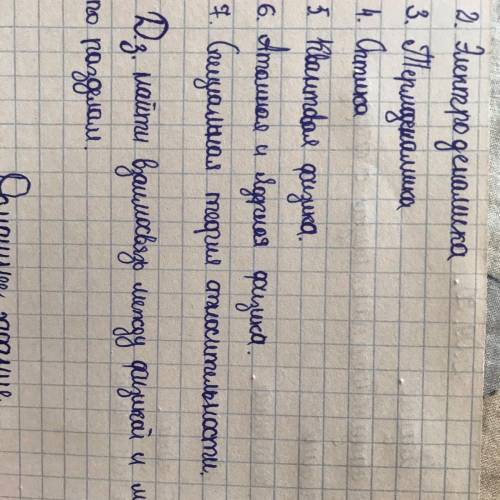 2. Электро деналика
3. Термодиналика
4. Оптика
5 Квантовая физика.
6. Атомная и ядерная физика.
7. Специальная теория относительности.
Дз. найти взаимосвязь между физикой и м
по разделам.